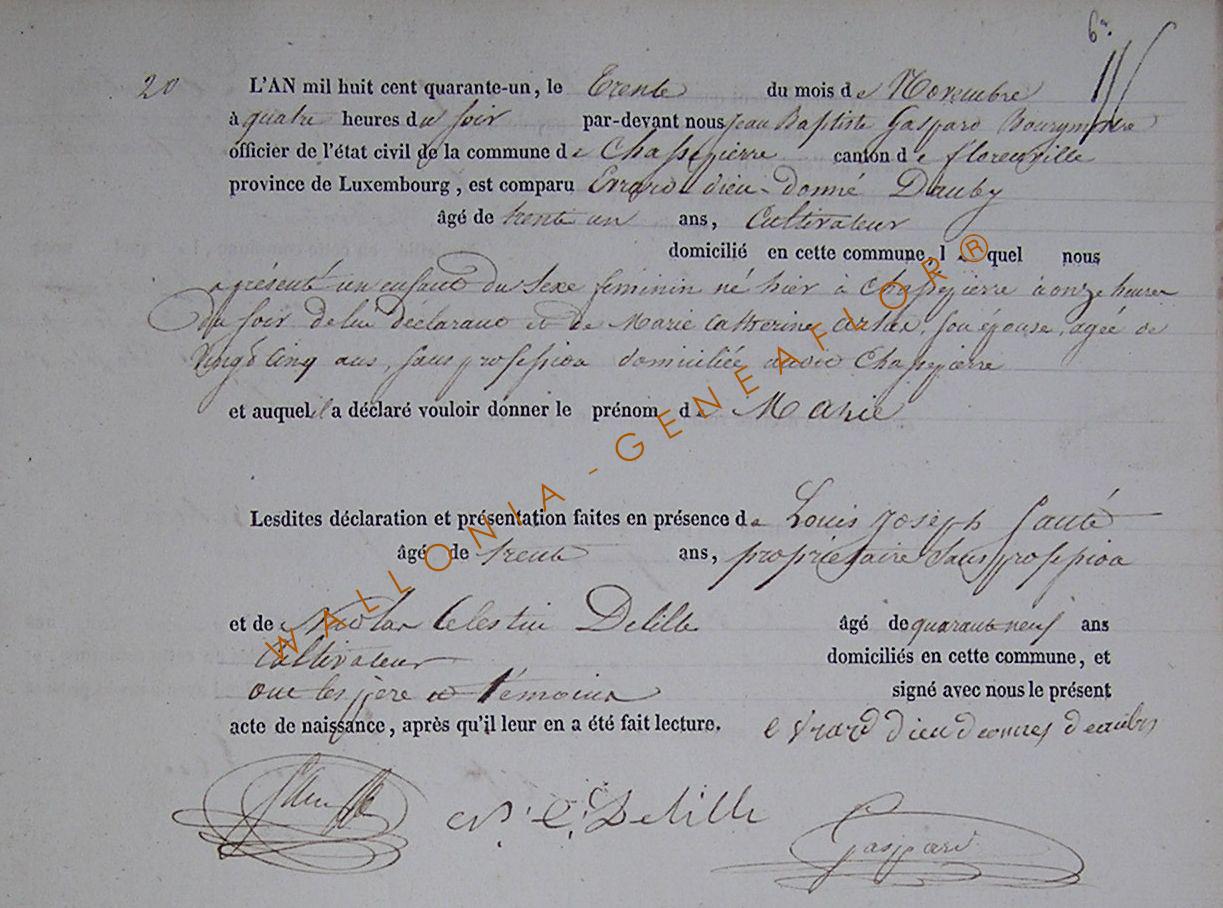 6e
20 L'AN mil huit cent quarante-un, le trente du mois de Novembre
à quatre heures du soir par-devant nous Jean Baptiste Gaspard Bourgmestre
officier de l'état civil de la commune de Chassepierre canton de florenville
province de Luxembourg, est comparu Evrard dieu-donné Dauby
âgé de trente un ans, Cultivateur
domicilié en cette commune, lequel nous
a présenté un enfant du Sexe féminin né hier à Chassepierre à onze heures
du soir de lui déclarant et de Marie Catherine son épouse, agée de
vingt cinq ans, sans profession domiciliée audit Chassepierre
et auquel il a déclaré vouloir donner le prénom de Marie
Lesdites déclaration et présentation faites en présence de Louis Joseph
âgé de trente ans, propriétaire sans profession
et de Nicolas Celestin Delille âgé de quarante neuf ans
Cultivateur domiciliés en cette commune, et
ont les père et témoins signé avec nous le présent
acte de naissance, après qu'il leur en a été fait lecture. evrard dieudonnes
N. C. Delille Gaspard
WALLONIA-GENEAFLOR®